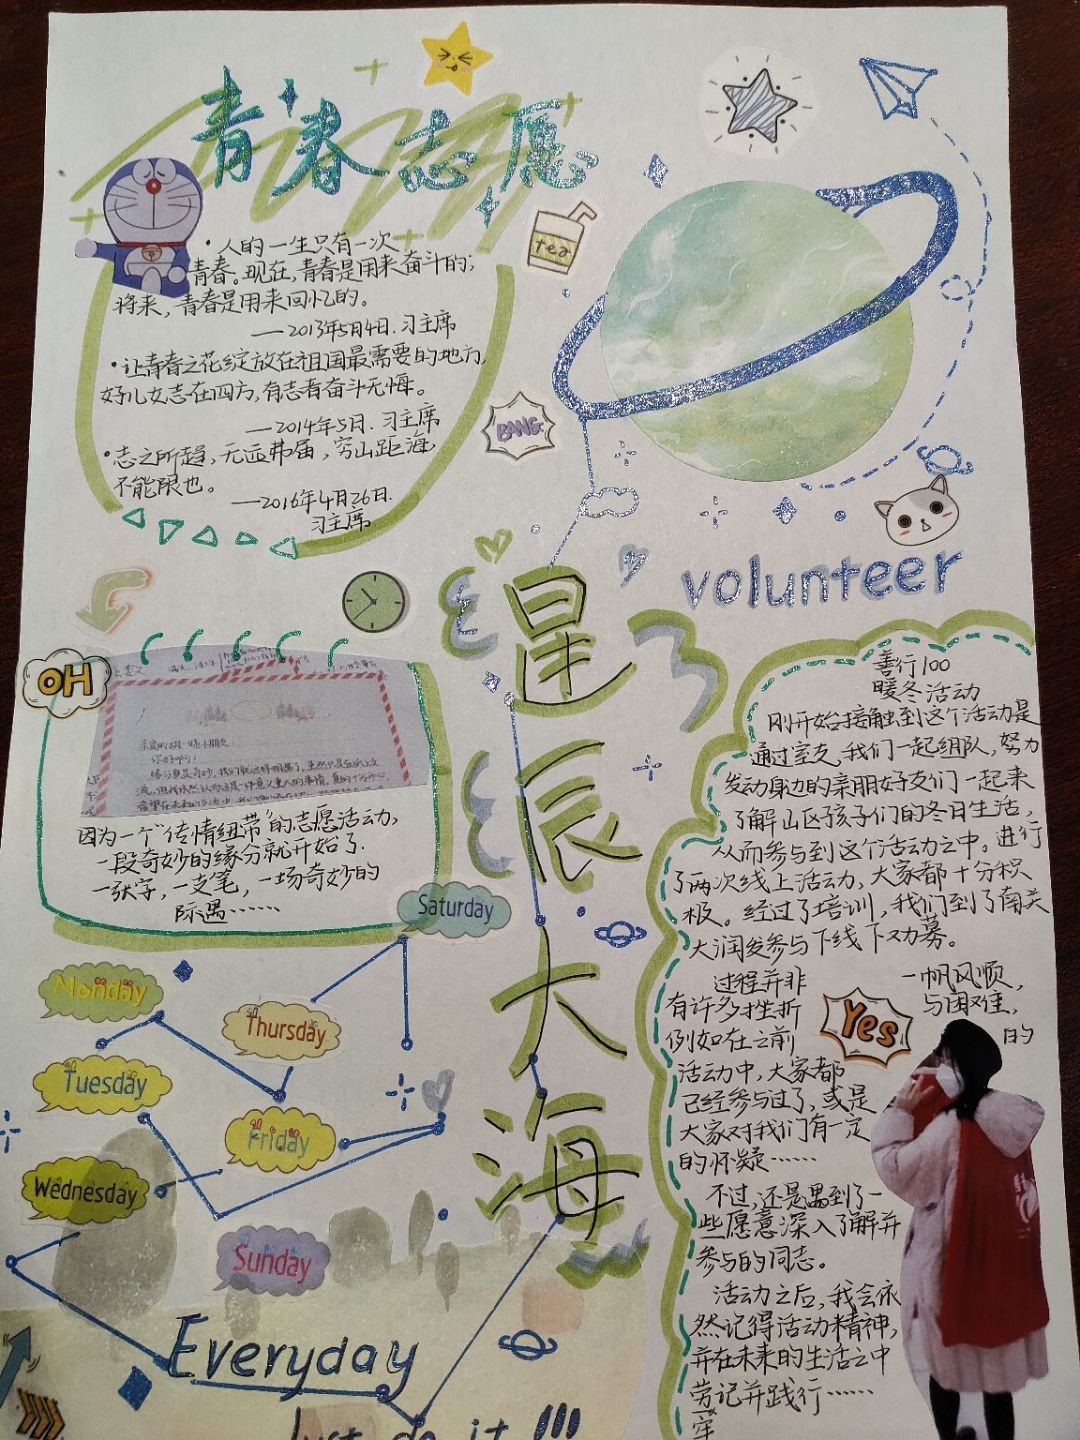 青春志愿
tea
·人的一生只有一次
青春。现在,青春是用来奋斗的;
将来,青春是用来回忆的。
——2013年5月4日.习主席
·让青春之花绽放在祖国最需要的地方,
好儿女志在四方,有志者奋斗无悔。
——2014年5月.习主席
·志之所趋,无远弗届,穷山距海,
不能限也。
——2016年4月26日.
习主席
BANG
volunteer
星辰大海
OH
你好呀!
因为一个“传情纽带”的志愿活动,
一段奇妙的缘分就开始了.
一张字,一支笔,一场奇妙的
际遇……
Saturday
Monday
Thursday
Tuesday
Friday
Wednesday
Sunday
Everyday
Just do it !!!
善行100
暖冬活动
刚开始接触到这个活动是
通过室友,我们一起组队,努力
发动身边的亲朋好友们一起来
了解山区孩子们的冬日生活,
从而参与到这个活动之中。进行
了两次线上活动,大家都十分积
极。经过了培训,我们到了南关
大润发参与下线下劝募。
过程并非一帆风顺,
有许多挫折与困难,
例如在之前的
活动中,大家都
已经参与过了,或是
大家对我们有一定
的怀疑……
Yes
不过,还是遇到了一
些愿意深入了解并
参与的同志。
活动之后,我会依
然记得活动精神,
并在未来的生活之中
劳记并践行……
牢